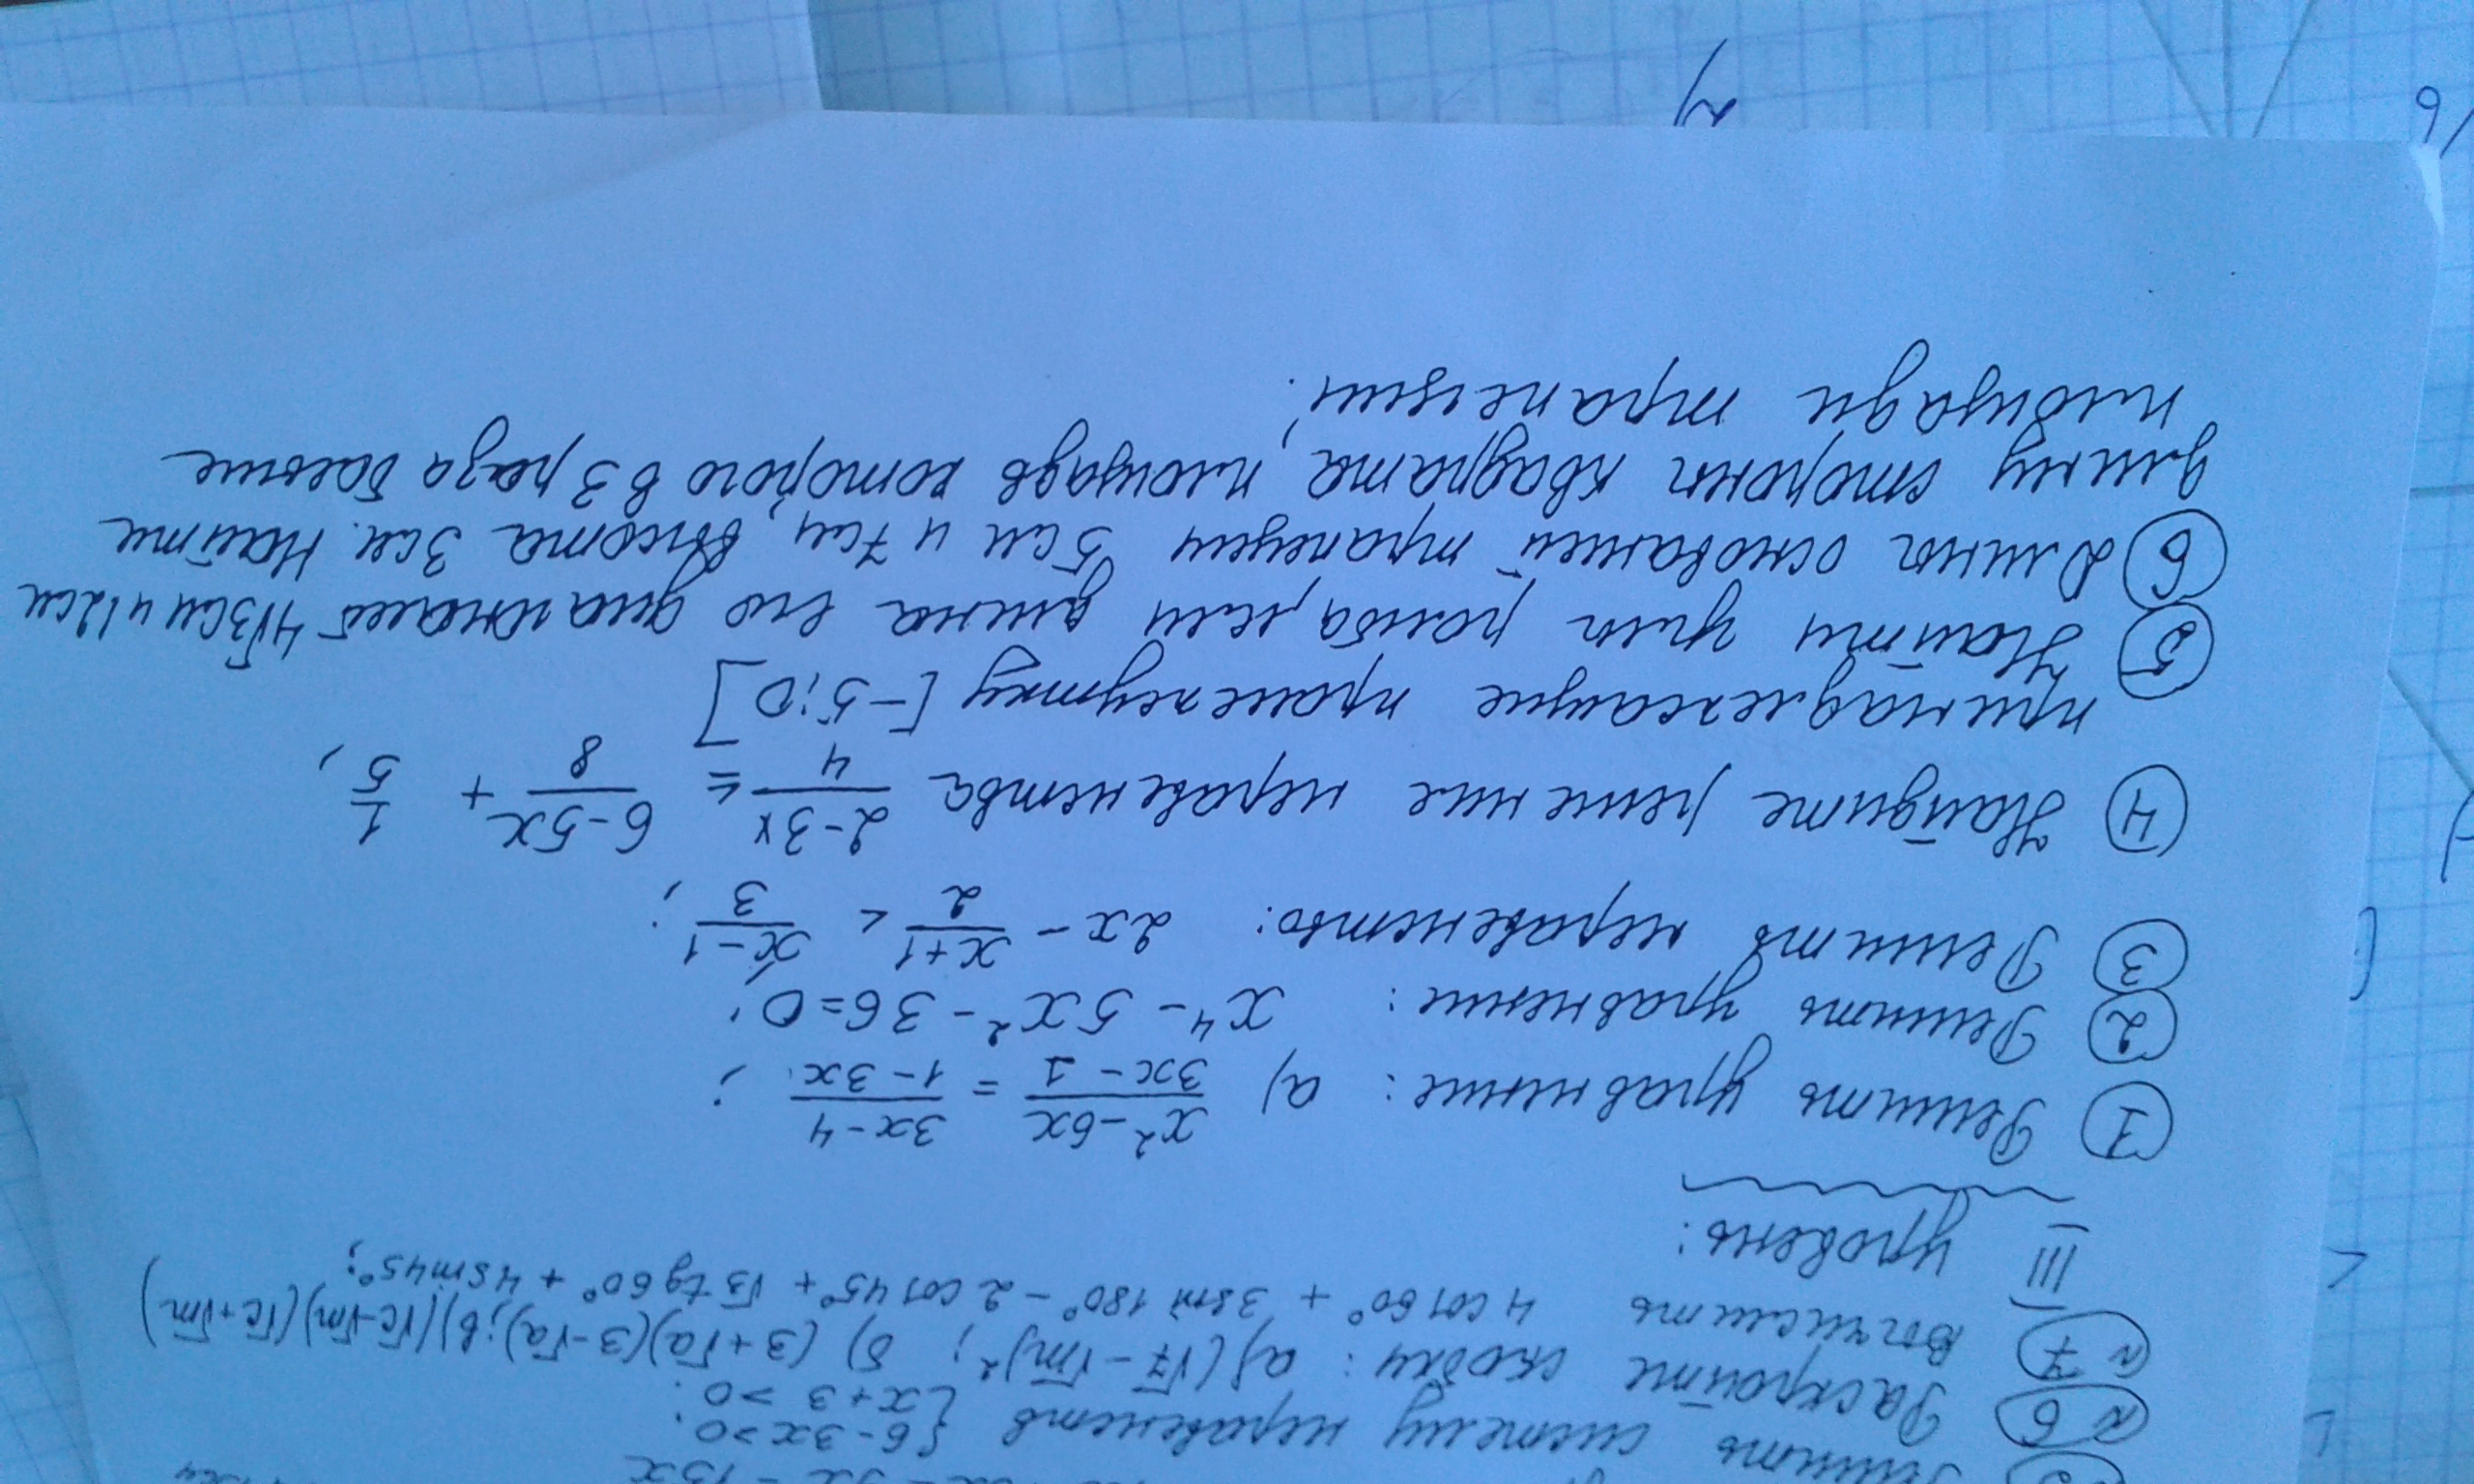 Решить систему неравенств { 6-3x>0;
x+3>0.
№6 Раскройте скобки: а) (√7-√m)²; б) (3+√a)(3-√a); в) (√c-√m)(√c+√m)
№7 Вычислить 4 cos 60° + 3 sin 180° - 2 cos 45° + √3 tg 60° + 4 sin 45°;
III уровень:
① Решить уравнение: а) (x²-6x)/(3x-1) = (3x-4)/(1-3x);
② Решить уравнение: x⁴ - 5x² - 36 = 0;
③ Решить неравенство: 2x - (x+1)/2 < (x-1)/3;
④ Найдите решение неравенства (2-3x)/4 ≤ (6-5x)/8 + 1/5,
принадлежащие промежутку [-5;0]
⑤ Найти углы ромба, если длина его диагоналей 4√3 см и 12 см
⑥ Длины оснований трапеции 5 см и 7 см, высота 3 см. Найти
длину стороны квадрата, площадь которого в 3 раза больше
площади трапеции.